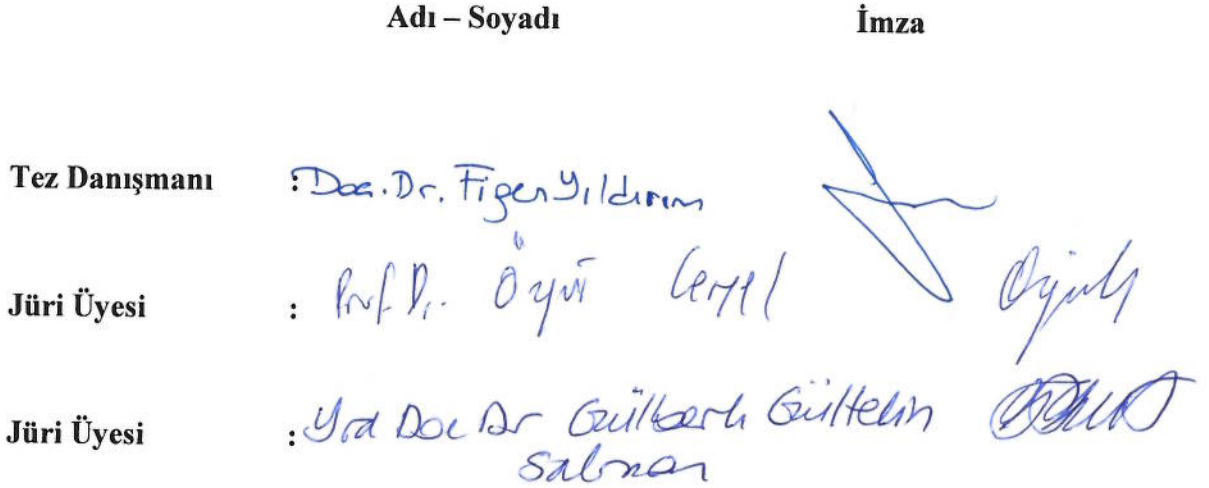 Adı – Soyadı İmza
Tez Danışmanı : Doç. Dr. Figen Yıldırım
Jüri Üyesi : Prof. Dr.
Jüri Üyesi : Yrd Doç Dr Gültekin
Salman